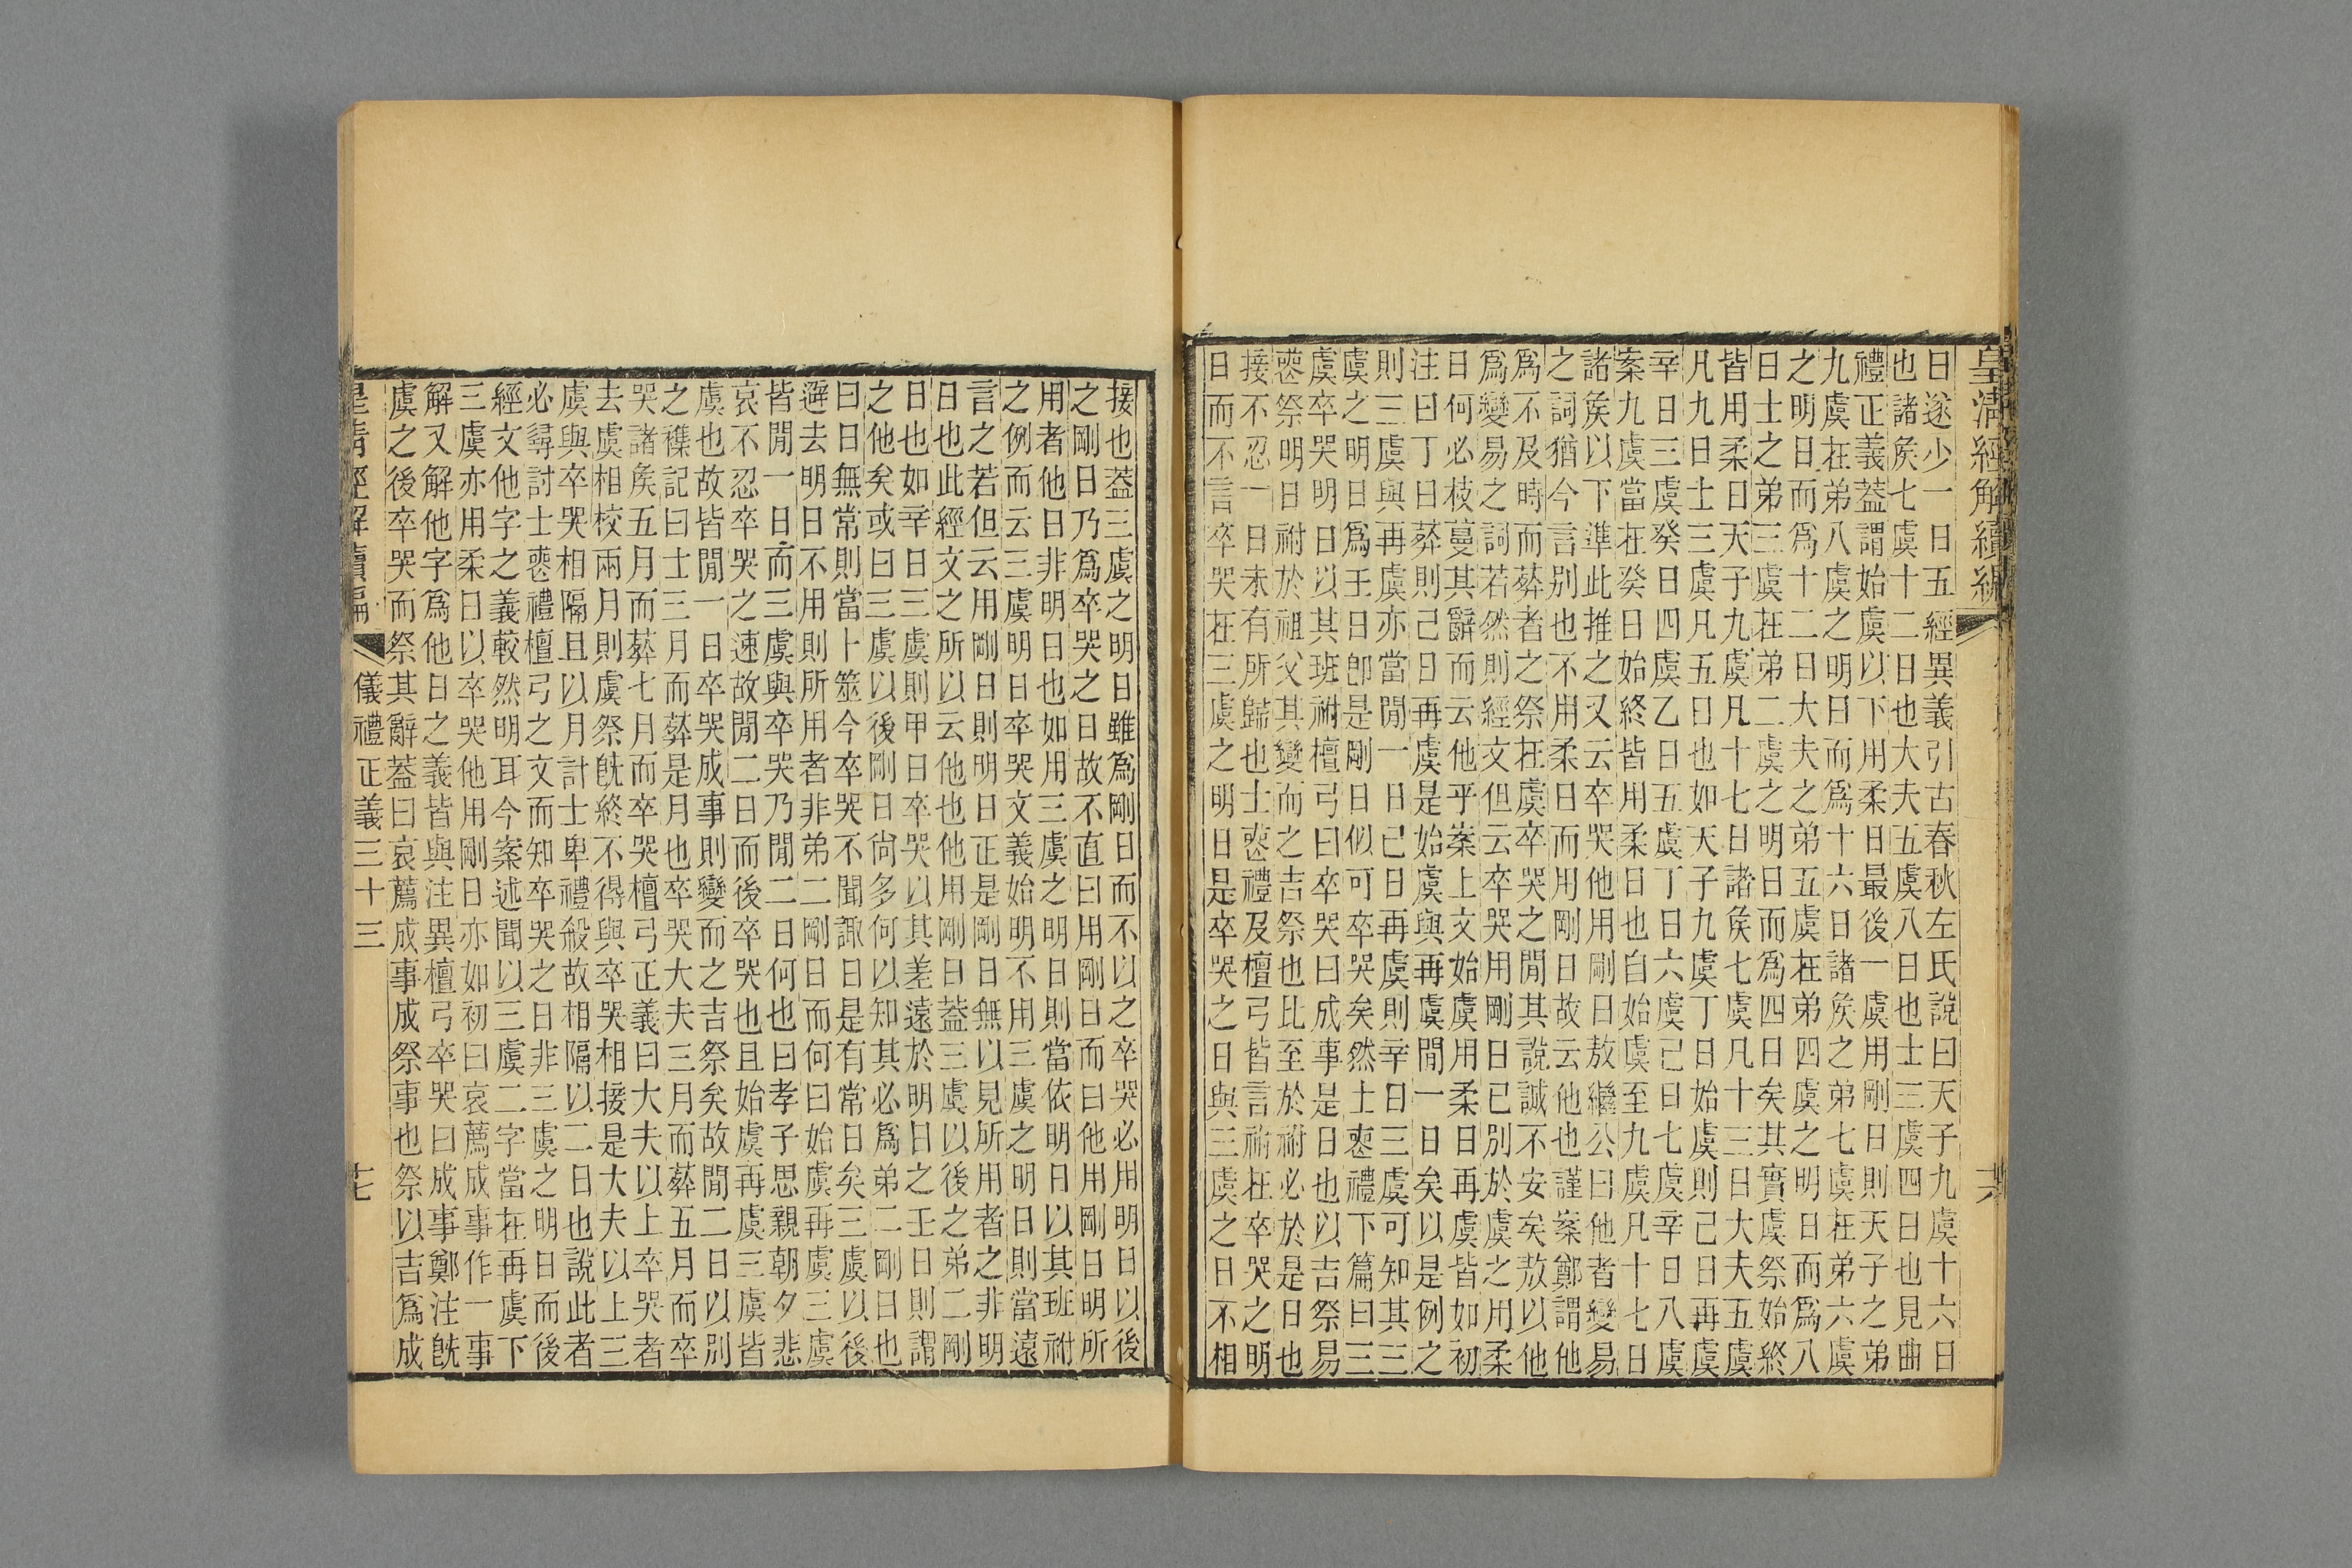 皇清經解續編
六
日遂少一日五經異義引古春秋左氏說曰天子九虞十六日
也諸矦七虞十二日也大夫五虞八日也士三虞四日也見曲
禮正義葢謂始虞以下用柔日最後一虞用剛日則天子之弟
九虞在弟八虞之明日而爲十六日諸矦之弟七虞在弟六虞
之明日而爲十二日大夫之弟五虞在弟四虞之明日而爲八
日士之弟三虞在弟二虞之明日而爲四日矣其實虞祭始終
皆用柔日天子九虞凡十七日諸矦七虞凡十三日大夫五虞
凡九日士三虞凡五日也如天子九虞丁日始虞則己日再虞
辛日三虞癸日四虞乙日五虞丁日六虞己日七虞辛日八虞
案九虞當在癸日始終皆用柔日也自始虞至九虞凡十七日
諸矦以下準此推之又云卒哭他用剛日敖繼公曰他者變易
之詞猶今言別也不用柔日而用剛日故云他也謹案鄭謂他
爲不及時而葬者之祭在虞卒哭之閒其說誠不安矣敖以他
爲變易之詞若然則經文但云卒哭用剛日已別於虞之用柔
日何必枝蔓其辭而云他乎案上文始虞用柔日再虞皆如初
注曰丁日葬則己日再虞是始虞與再虞閒一日矣以是例之
則三虞與再虞亦當閒一日已日再虞則辛日三虞可知其三
虞之明日爲壬日卽是剛日似可卒哭矣然士喪禮下篇曰三
虞卒哭明日以其班祔檀弓曰卒哭曰成事是日也以吉祭易
喪祭明日祔於祖父其變而之吉祭也比至於祔必於是日也
接不忍一日未有所歸也士喪禮及檀弓皆言祔在卒哭之明
日而不言卒哭在三虞之明日是卒哭之日與三虞之日不相
接也葢三虞之明日雖爲剛日而不以之卒哭必用明日以後
之剛日乃爲卒哭之日故不直曰用剛日而曰他用剛日明所
用者他日非明日也如用三虞之明日則當依明日以其班祔
之例而云三虞明日卒哭文義始明不用三虞之明日則當遠
言之若但云用剛日則明日正是剛日無以見所用者之非明
日也此經文之所以云他也他用剛日葢三虞以後之弟二剛
日也如辛日三虞則甲日卒哭以其差遠於明日之壬日則謂
之他矣或曰三虞以後剛日尙多何以知其必爲弟二剛日也
曰日無常則當卜筮今卒哭不聞諏日是有常日矣三虞以後
避去明日不用則所用者非弟二剛日而何曰始虞再虞三虞
皆閒一日而三虞與卒哭乃閒二日何也曰孝子思親朝夕悲
哀不忍卒哭之速故閒二日而後卒哭也且始虞再虞三虞皆
虞也故皆閒一日卒哭成事則變而之吉祭矣故閒二日以別
之襍記曰士三月而葬是月也卒哭大夫三月而葬五月而卒
哭諸矦五月而葬七月而卒哭檀弓正義曰大夫以上卒哭者
去虞相校兩月則虞祭旣終不得與卒哭相接是大夫以上三
虞與卒哭相隔且以月計士卑禮殺故相隔以二日也說此者
必尋討士喪禮檀弓之文而知卒哭之日非三虞之明日而後
經文他字之義較然明耳今案述聞以三虞二字當在再虞下
三虞亦用柔日以卒哭他用剛日亦如初曰哀薦成事作一事
解又解他字爲他日之義皆與注異檀弓卒哭曰成事鄭注旣
虞之後卒哭而祭其辭葢曰哀薦成事成祭事也祭以吉爲成
皇清經解續編
儀禮正義三十三
十七